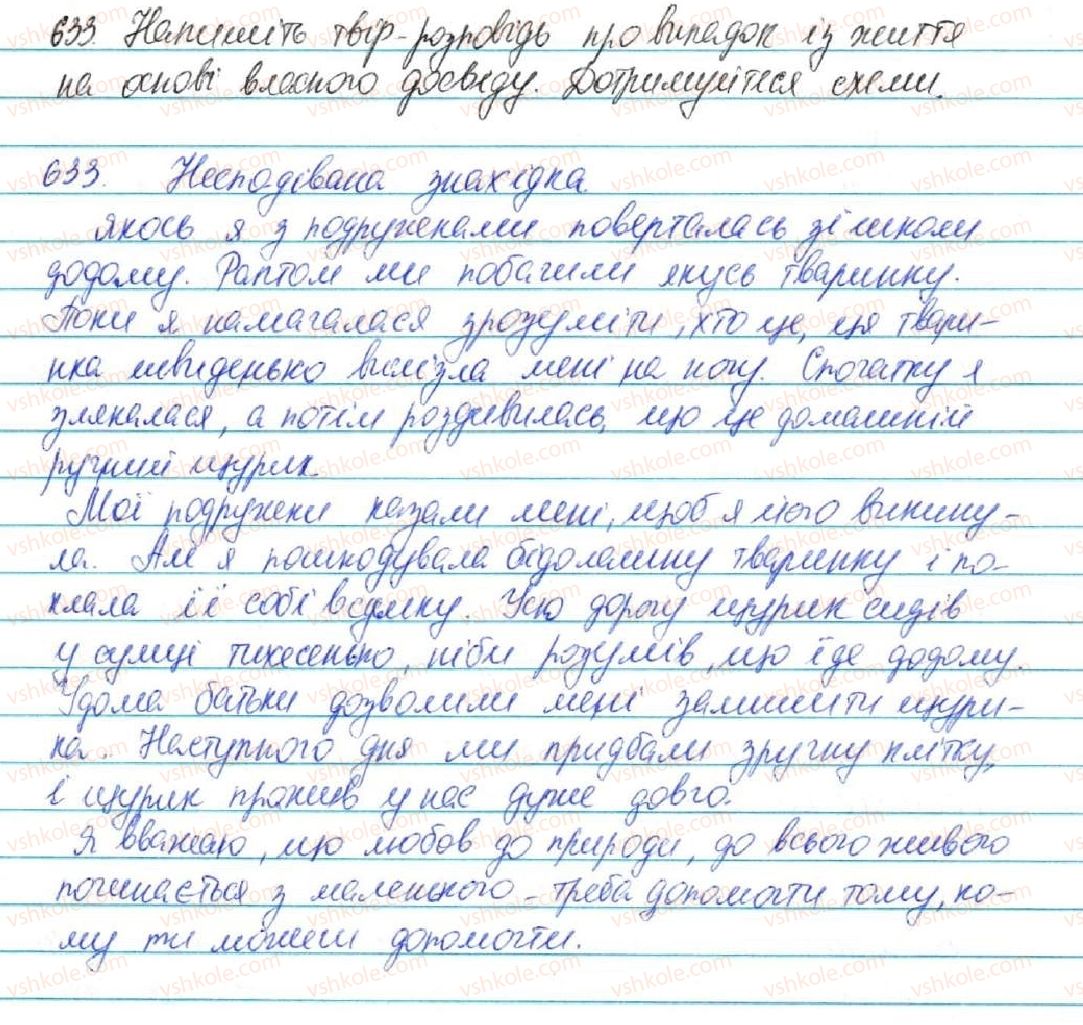 633. Напишіть твір-розповідь про випадок із життя
на основі власного досвіду. Дотримуйтеся схеми.
633. Несподівана знахідка.
Якось я з подружками поверталась зі школи
додому. Раптом ми побачили якусь тваринку.
Поки я намагалася зрозуміти, хто це, ця твари-
нка швиденько вилізла мені на ногу. Спочатку я
злякалася, а потім роздивилась, що це домашній
ручний щурик.
Мої подружки казали мені, щоб я його викину-
ла. Але я пошкодувала бідолашну тваринку і по-
клала її собі в сумку. Усю дорогу щурик сидів
у сумці тихесенько, ніби розумів, що їде додому.
Удома батьки дозволили мені залишити щури-
ка. Наступного дня ми придбали зручну клітку,
і щурик прожив у нас дуже довго.
Я вважаю, що любов до природи, до всього живого
починається з маленького - треба допомогти тому, ко-
му ти можеш допомогти.
vshkole.com